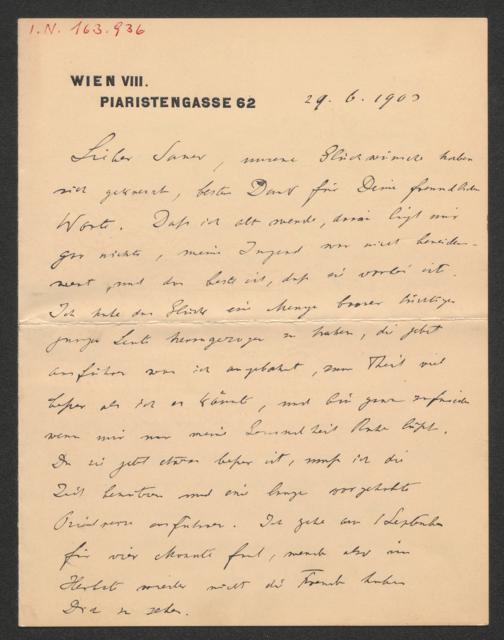 I.N. 163.936
WIEN VIII.
PIARISTENGASSE 62
29. 6. 1903
Lieber Sauer, unsere Glückwünsche haben
sich gekreuzt, besten Dank für Deine freundlichen
Worte. Daß ich alt werde, daran ligt mir
gar nichts, meine Jugend war nicht beneidens-
wert, und das beste ist, daß sie vorbei ist.
Ich habe das Glück eine Menge braver tüchtiger
junger Leute herangezogen zu haben, die jetzt
ausführen was ich angebahnt, zum Theil viel
besser als ich es könnte, und bin ganz zufrieden
wenn mir nur meine Krankheit Ruhe läßt.
Da sie jetzt etwas besser ist, muß ich die
Zeit benützen und eine lange vorgehabte
Orientreise ausführen. Ich gehe am 1 September
für vier Monate fort, werde also im
Herbst wieder nicht die Freude haben
Dich zu sehen.